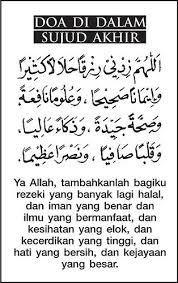 DOA DI DALAM
SUJUD AKHIR
اَللّٰهُمَّ زِدْنِي رِزْقًا حَلَالًا كَثِيْرًا
وَإِيْمَانًا صَحِيْحًا، وَعُلُوْمًا نَافِعَةً
وَصِحَّةً جَيِّدَةً، وَذَكَاءً عَالِيًا،
وَقَلْبًا صَافِيًا، وَنَصْرًا عَظِيْمًا.
Ya Allah, tambahkanlah bagiku
rezeki yang banyak lagi halal,
dan iman yang benar dan
ilmu yang bermanfaat, dan
kesihatan yang elok, dan
kecerdikan yang tinggi, dan
hati yang bersih, dan kejayaan
yang besar.